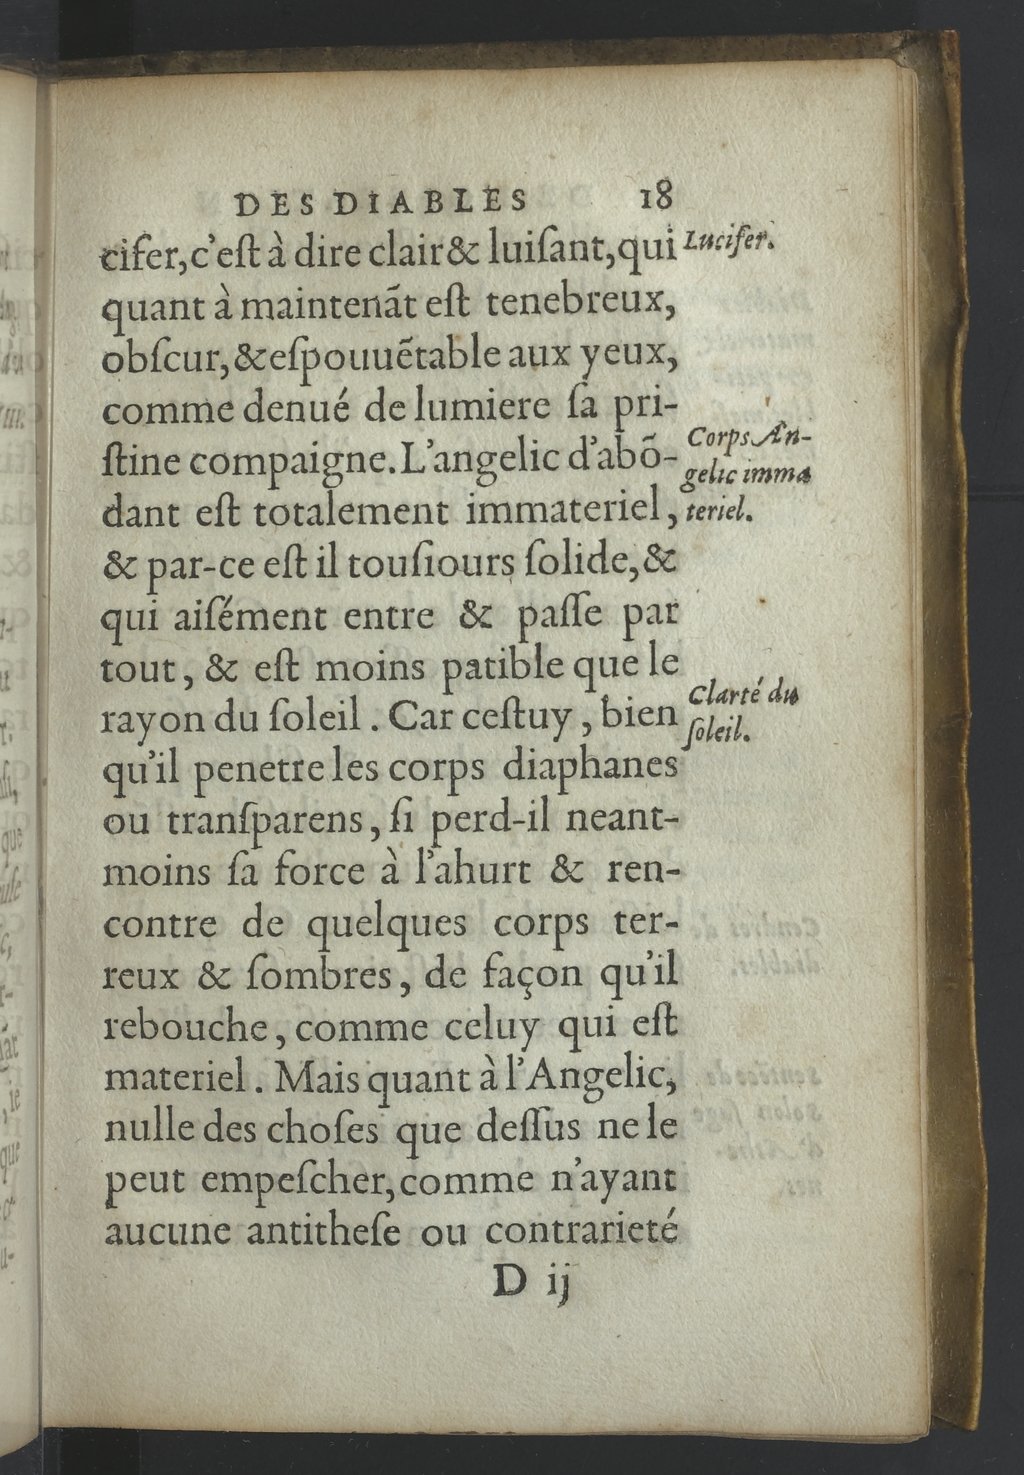 DES DIABLES 18
cifer,c'eſt à dire clair& luiſant,qui
Lucifer.
quant à maintenãt eſt tenebreux,
obſcur,&eſpouuẽtable aux yeux,
comme denué de lumiere ſa pri-
ſtine compaigne.L'angelic d'abõ-
Corps An-
gelic imma
dant eſt totalement immateriel,
teriel.
& par-ce eſt il touſiours ſolide,&
qui aiſément entre & paſſe par
tout, & eſt moins patible que le
rayon du ſoleil. Car ceſtuy, bien
Clarté du
ſoleil.
qu'il penetre les corps diaphanes
ou tranſparens, ſi perd-il neant-
moins ſa force à l'ahurt & ren-
contre de quelques corps ter-
reux & ſombres, de façon qu'il
rebouche, comme celuy qui eſt
materiel. Mais quant à l'Angelic,
nulle des choſes que deſſus ne le
peut empeſcher,comme n'ayant
aucune antitheſe ou contrarieté
D ij